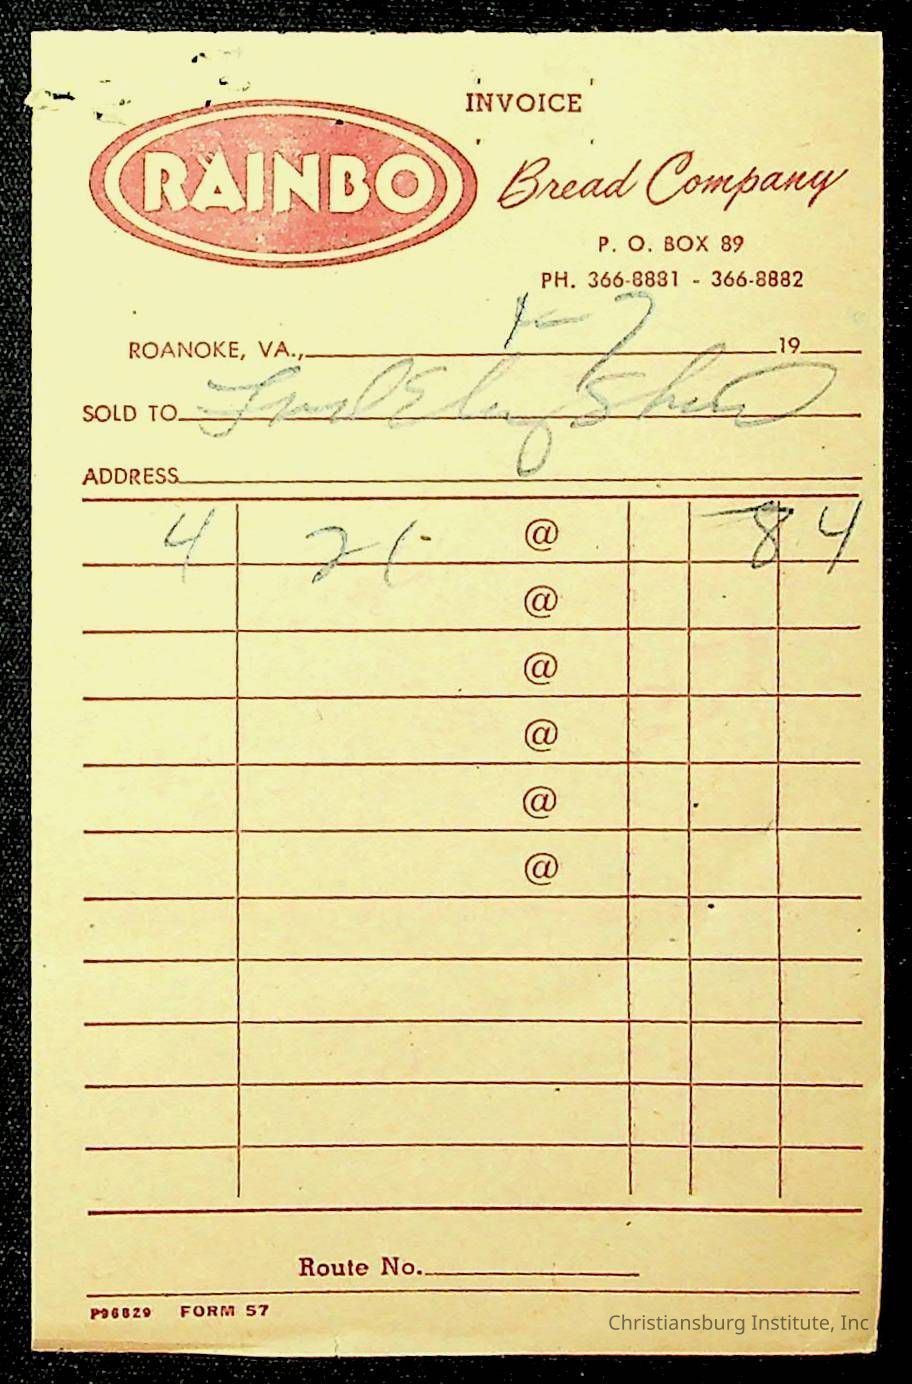 INVOICE
RAINBO
Bread Company
P. O. BOX 89
PH. 366-8881 - 366-8882
ROANOKE, VA., 1-7 19
SOLD TO
ADDRESS
4 21 @ 84
@
@
@
@
@
Route No.
P96829 FORM 57
Christiansburg Institute, Inc